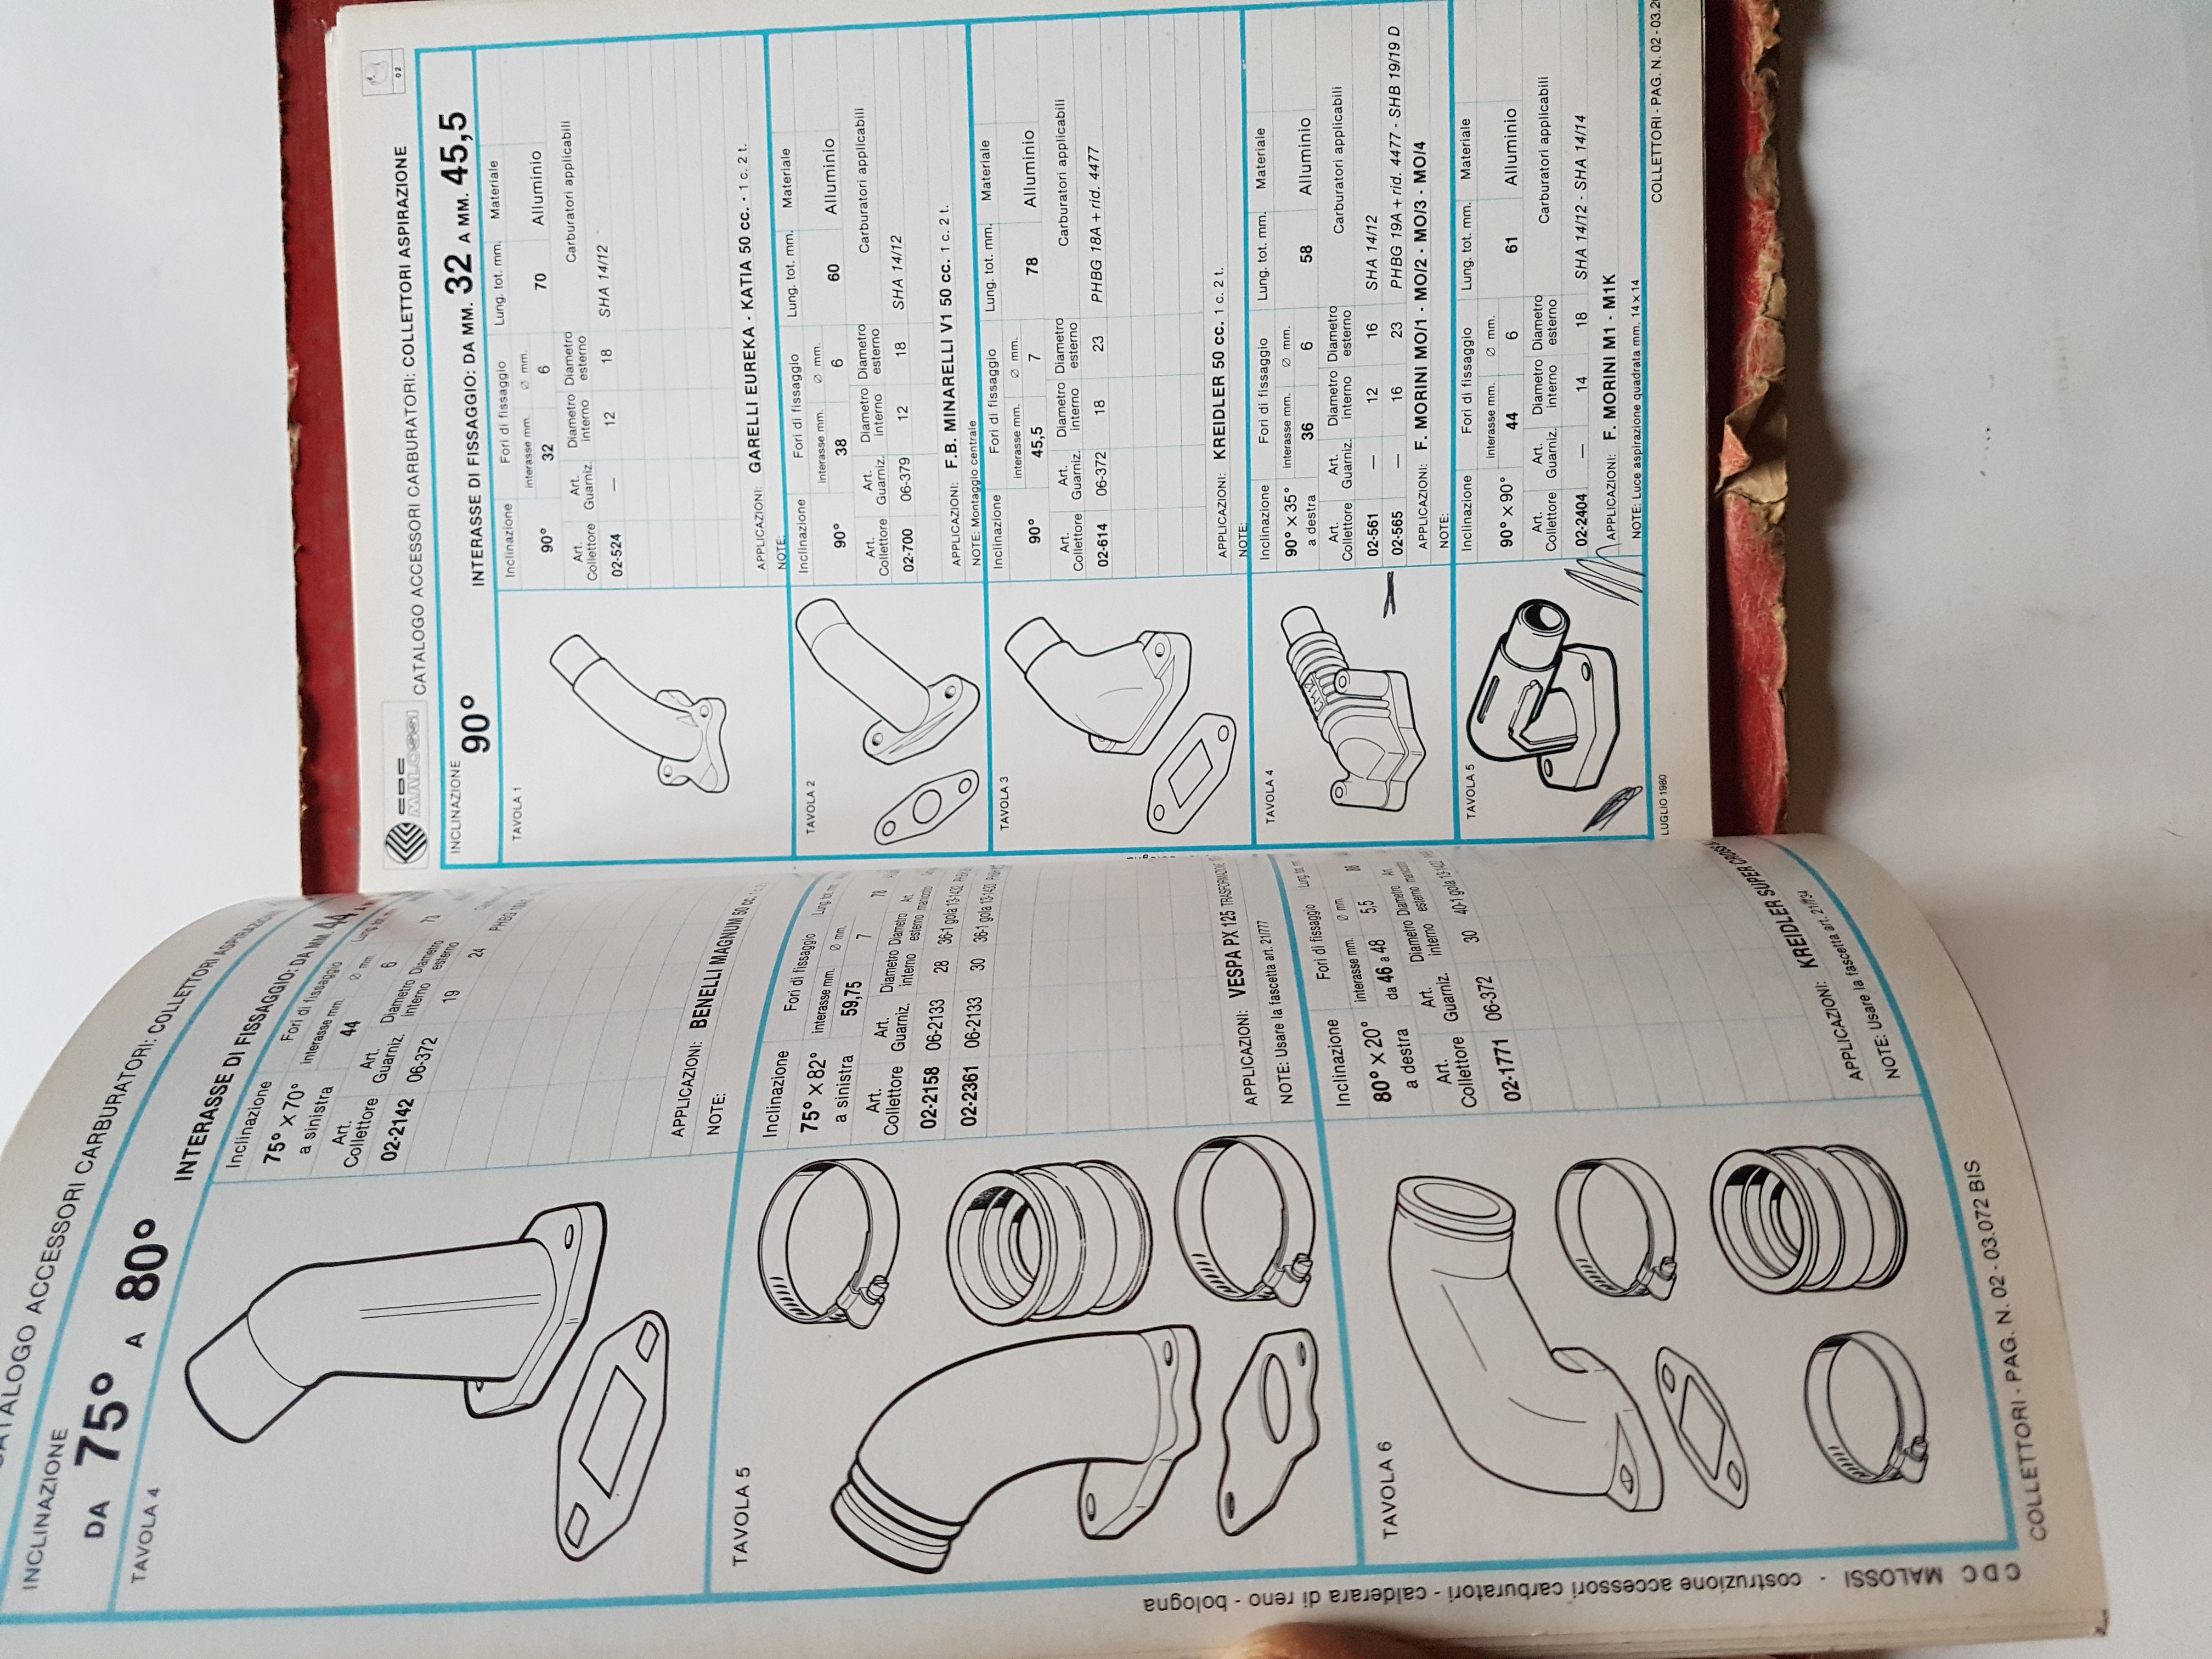 CATALOGO ACCESSORI CARBURATORI: COLLETTORI ASPIRAZIONE
INCLINAZIONE
DA 75° A 80°
INTERASSE DI FISSAGGIO: DA MM. 44
TAVOLA 4
Inclinazione Fori di fissaggio
75° X 70° interasse mm. Ø mm.
a sinistra 44 6 73
Art. Collettore Art. Guarniz. Diametro interno Diametro esterno
02-2142 06-372 19 24
APPLICAZIONI: BENELLI MAGNUM 50 cc.
NOTE:
TAVOLA 5
Inclinazione Fori di fissaggio Lung. tot. mm.
75° X 82° interasse mm. Ø mm.
a sinistra 59,75 7 78
Art. Collettore Art. Guarniz. Diametro interno Diametro esterno Art. manicotto
02-2158 06-2133 28 36-1 gola 13-1432
02-2361 06-2133 30 36-1 gola 13-1430
APPLICAZIONI: VESPA PX 125 TRASFORMAZIONE
NOTE: Usare la fascetta art. 21/777
TAVOLA 6
Inclinazione Fori di fissaggio
80° X 20° interasse mm. Ø mm.
a destra da 46 a 48 5,5 86
Art. Collettore Art. Guarniz. Diametro interno Diametro esterno Art. manicotto
02-1771 06-372 30 40-1 gola
APPLICAZIONI: KREIDLER SUPER CROSS
NOTE: Usare la fascetta art.
COLLETTORI - PAG. N. 02 - 03.072 BIS
CDC MALOSSI - costruzione accessori carburatori - calderara di reno - bologna
CDC
MALOSSI
CATALOGO ACCESSORI CARBURATORI: COLLETTORI ASPIRAZIONE
02
INCLINAZIONE
90°
INTERASSE DI FISSAGGIO: DA MM. 32 A MM. 45,5
TAVOLA 1
Inclinazione Fori di fissaggio Lung. tot. mm. Materiale
interasse mm. Ø mm.
90° 32 6 70 Alluminio
Art. Collettore Art. Guarniz. Diametro interno Diametro esterno Carburatori applicabili
02-524 — 12 18 SHA 14/12
APPLICAZIONI: GARELLI EUREKA - KATIA 50 cc. - 1 c. 2 t.
NOTE:
TAVOLA 2
Inclinazione Fori di fissaggio Lung. tot. mm. Materiale
interasse mm. Ø mm.
90° 38 6 60 Alluminio
Art. Collettore Art. Guarniz. Diametro interno Diametro esterno Carburatori applicabili
02-700 06-379 12 18 SHA 14/12
APPLICAZIONI: F.B. MINARELLI V1 50 cc. 1 c. 2 t.
NOTE: Montaggio centrale
TAVOLA 3
Inclinazione Fori di fissaggio Lung. tot. mm. Materiale
interasse mm. Ø mm.
90° 45,5 7 78 Alluminio
Art. Collettore Art. Guarniz. Diametro interno Diametro esterno Carburatori applicabili
02-614 06-372 18 23 PHBG 18A + rid. 4477
APPLICAZIONI: KREIDLER 50 cc. 1 c. 2 t.
NOTE:
TAVOLA 4
Inclinazione Fori di fissaggio Lung. tot. mm. Materiale
90° X 35° interasse mm. Ø mm.
a destra 36 6 58 Alluminio
Art. Collettore Art. Guarniz. Diametro interno Diametro esterno Carburatori applicabili
02-561 — 12 16 SHA 14/12
02-565 — 16 23 PHBG 19A + rid. 4477 - SHB 19/19 D
APPLICAZIONI: F. MORINI MO/1 - MO/2 - MO/3 - MO/4
NOTE:
TAVOLA 5
Inclinazione Fori di fissaggio Lung. tot. mm. Materiale
interasse mm. Ø mm.
90° X 90° 44 6 61 Alluminio
Art. Collettore Art. Guarniz. Diametro interno Diametro esterno Carburatori applicabili
02-2404 — 14 18 SHA 14/12 - SHA 14/14
APPLICAZIONI: F. MORINI M1 - M1K
NOTE: Luce aspirazione quadrata mm. 14 x 14
LUGLIO 1980
COLLETTORI - PAG. N. 02 - 03.2